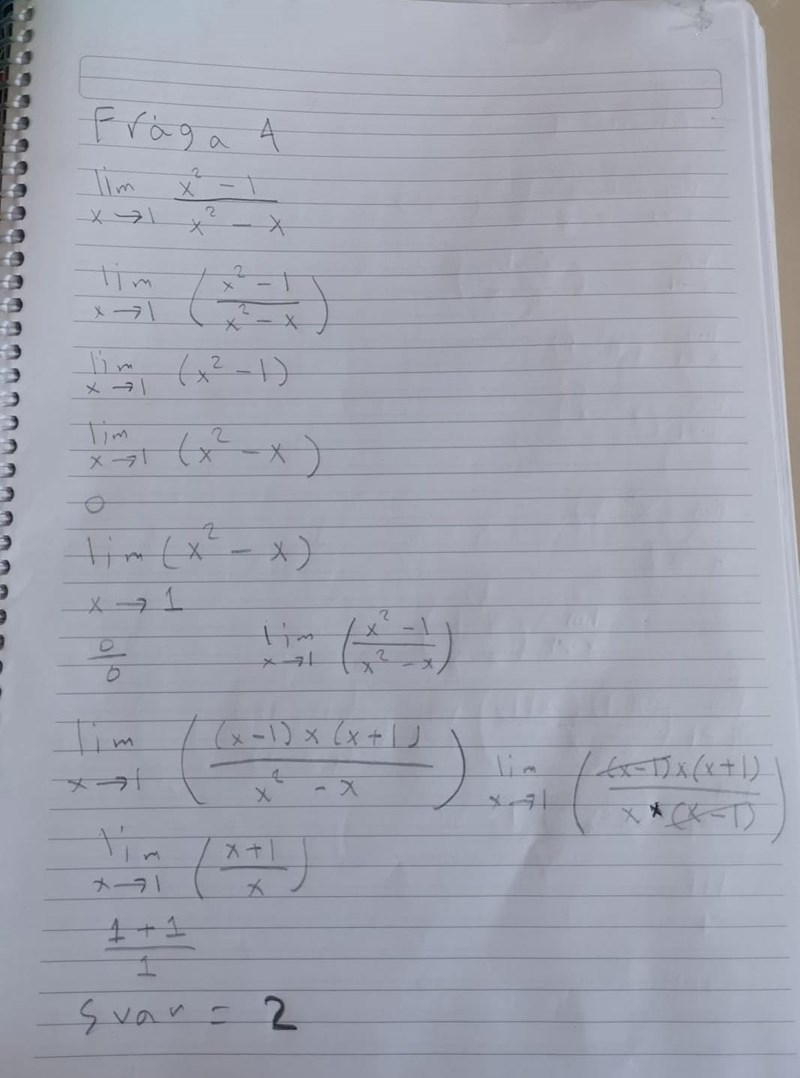 Fråga 4
lim x→1 x² - 1 / x² - x
lim x→1 (x² - 1 / x² - x)
lim x→1 (x² - 1)
lim x→1 (x² - x)
0
lim (x² - x)
x → 1
0/0 lim x→1 (x² - 1 / x² - x)
lim x→1 ((x-1) × (x+1) / x² - x) lim x→1 ((x-1) × (x+1) / x * (x-1))
lim x→1 (x+1 / x)
1 + 1 / 1
Svar = 2